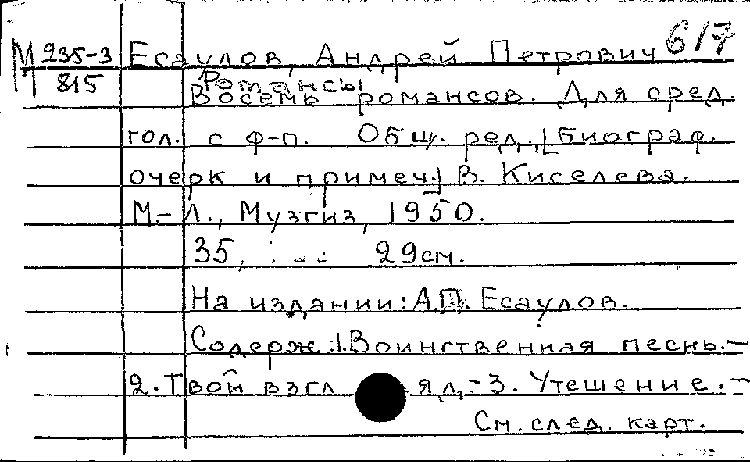 М 235-3 Есаулов, Андрей Петрович 617
815 Романсы
Восемь романсов. Для сред.
гол. с ф-п. Общ. ред., [биограф.
очерк и примеч.] В. Киселева.
М.-Л., Музгиз, 1950.
35, 29см.
На издании: А.П. Есаулов.
Содерж.: 1. Воинственная песнь.-
2. Твой взгляд,- 3. Утешение.-
См. след. карт.